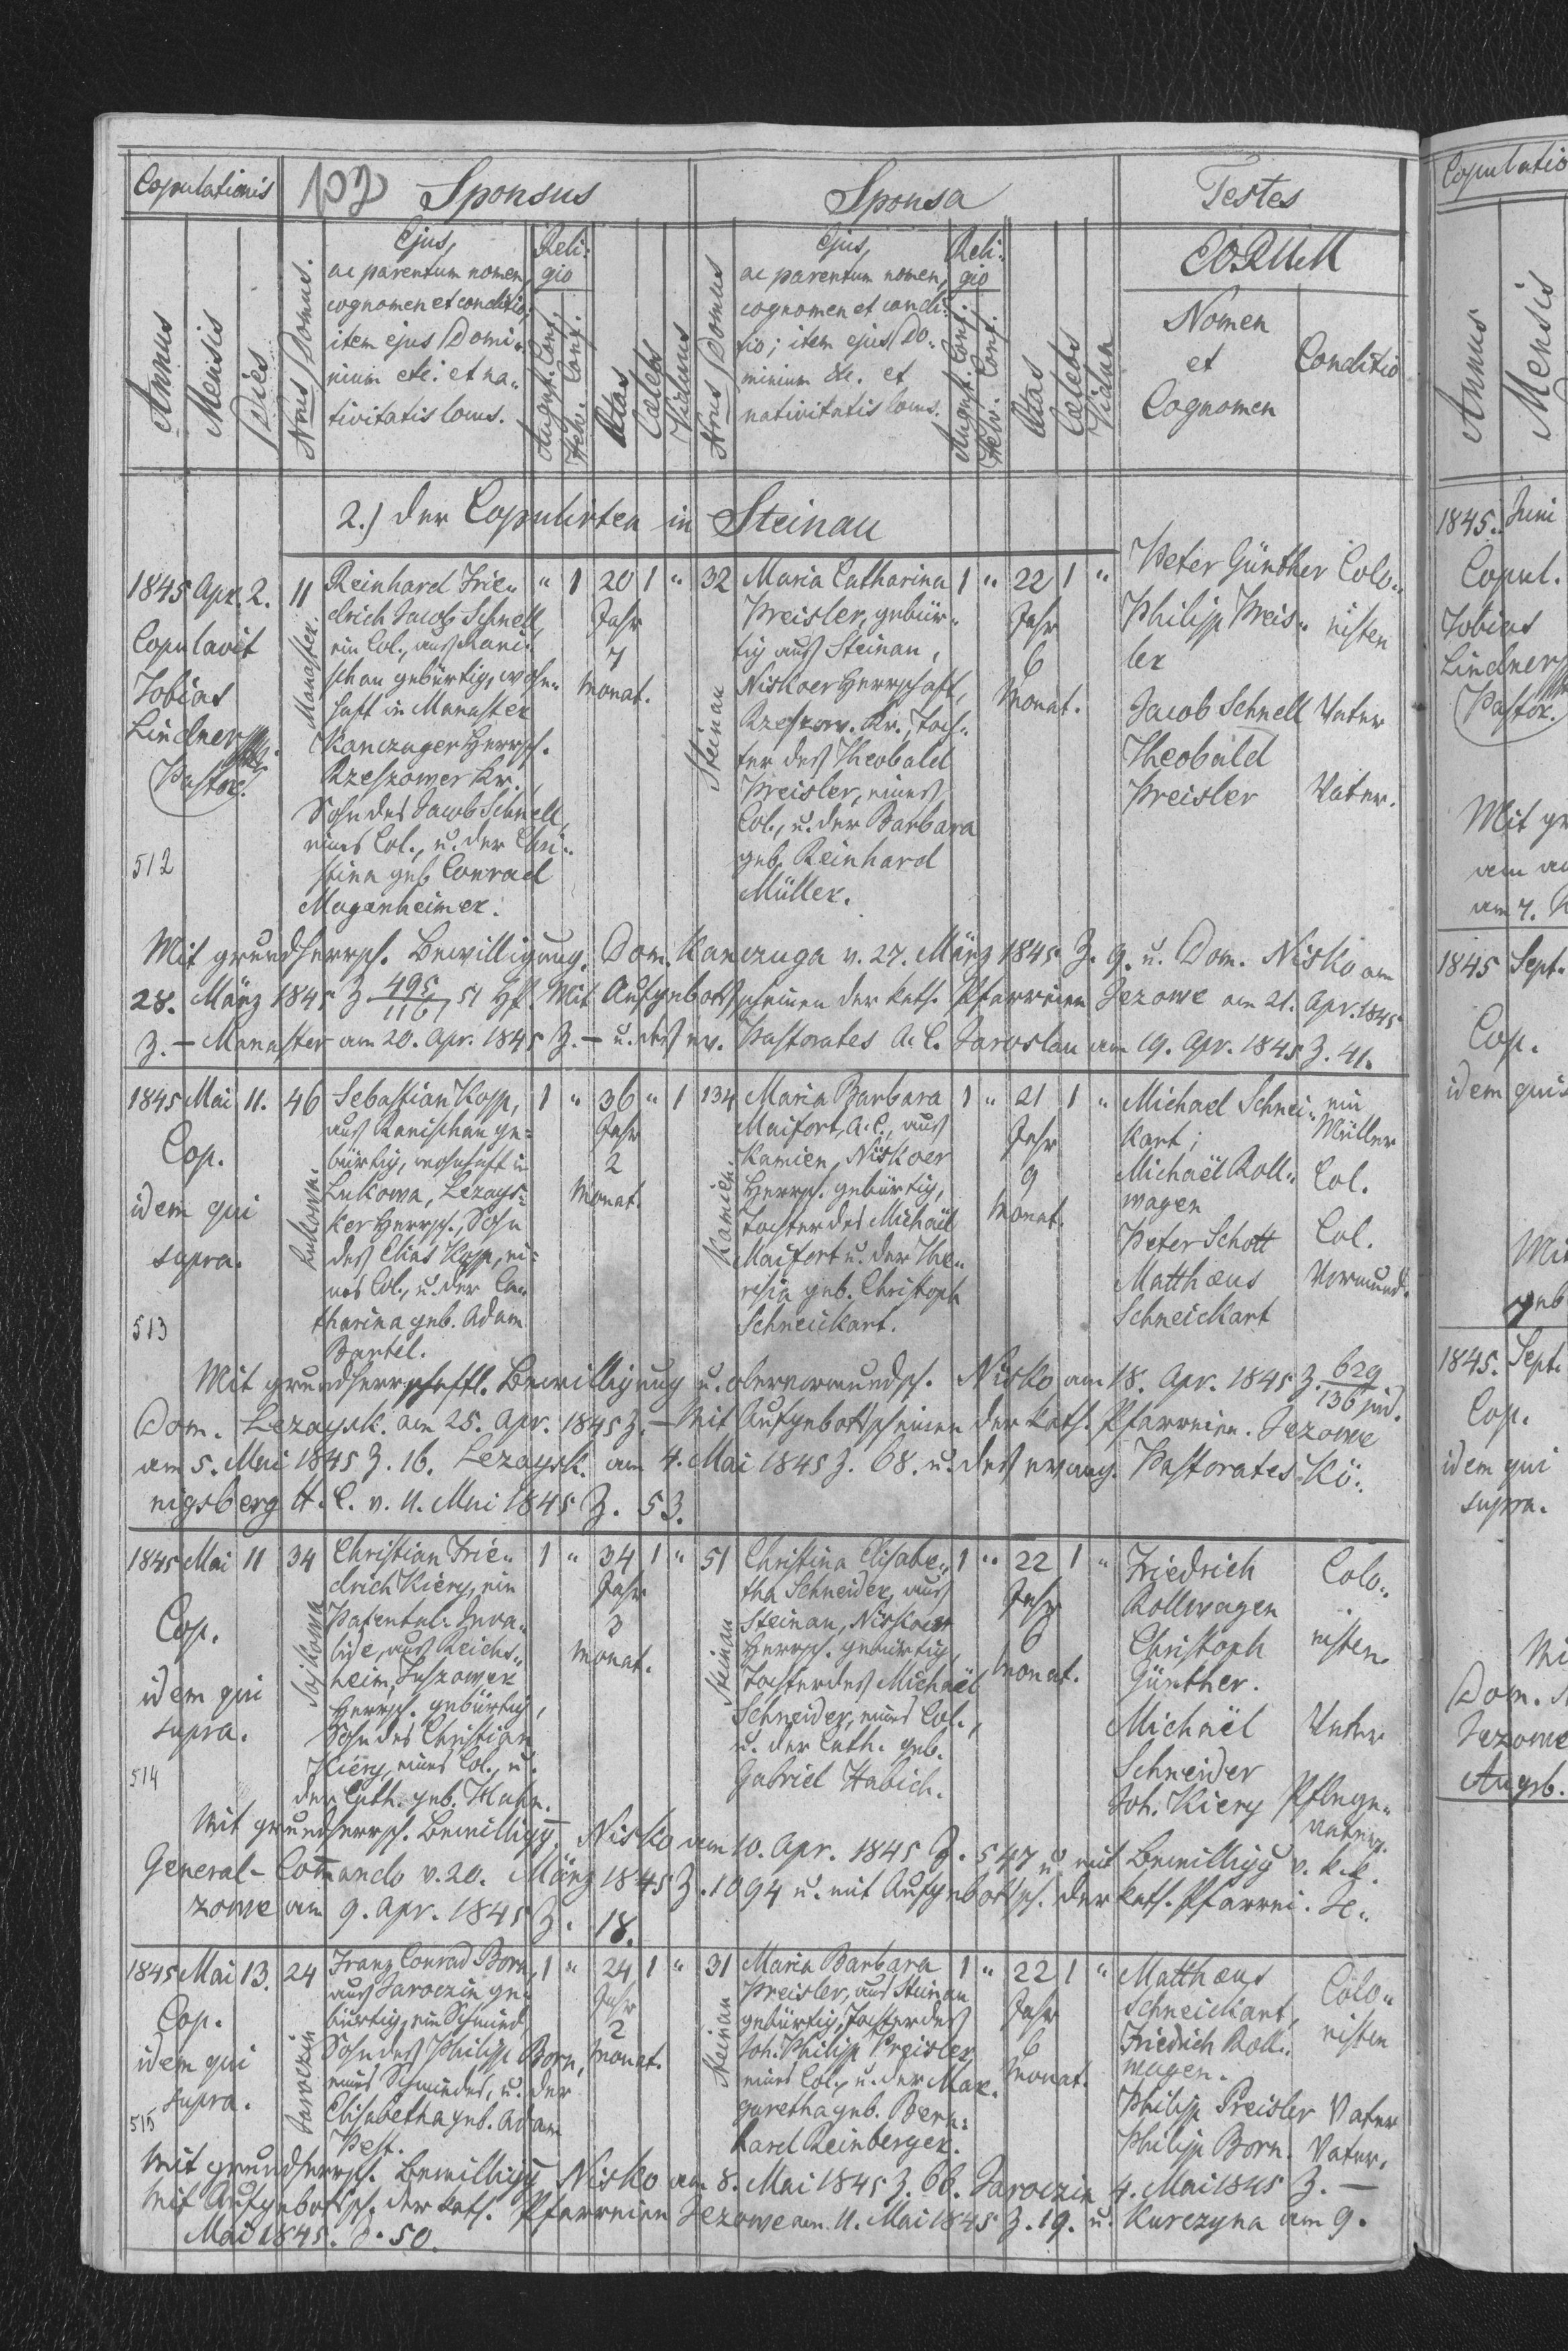 Copulationis
102 Sponsus
Sponsa
Testes
Annus
Mensis
Dies
Nrus Domus.
Ejus,
ac parentum nomen,
cognomen et conditio;
item ejus Domi-
nium etc. et na-
tivitatis locus.
Reli-
gio
August. Conf.
Helv. Conf.
Ætas
Cælebs
Viduus
Nrus Domus
Ejus,
ac parentum nomen,
cognomen et condi-
tio; item ejus Do-
minium &c. et
nativitatis locus.
Reli-
gio
August. Conf.
Helv. Conf.
Ætas
Cælebs
Vidua
EORUM
Nomen
et
Cognomen
Conditio
2.) der Copulirten in Steinau
1845 Apr. 2.
Copulavit
Tobias
Lindner
Pastor.
512
11
Manaster.
Reinhard Frie-
drich Jacob Schnell,
ein Col., aus Rani-
schau gebürtig, wohn-
haft in Manaster
Kanczuger Herrsch.
Rzeszower Kr.,
Sohn des Jacob Schnell,
eines Col., u. der Chri-
stina geb. Conrad
Maganheimer.
" 1 20 1 "
Jahr
7
Monat.
32
Steinau
Maria Catharina
Preisler, gebür-
tig aus Steinau,
Niskoer Herrschaft,
Rzeszow. Kr., Toch-
ter des Theobald
Preisler, eines
Col., u. der Barbara
geb. Reinhard
Müller.
1 " 22 1 "
Jahr
6
Monat.
Peter Günther Colo-
Philipp Preis- nisten
ler
Jacob Schnell Vater
Theobald
Preisler Vater.
Mit grundherrsch. Bewilligung, Dom. Kanczuga v. 27. März 1845 Z. 9. u. Dom. Nisko am
28. März 1845 Z 495/116 Mit Aufgebotsscheinen der kath. Pfarreien Jezowe am 21. Apr. 1845
Z. – Manaster am 20. Apr. 1845 Z. – u. des ev. Pastorates A. C. Jaroslau am 19. Apr. 1845 Z. 41.
1845 Mai 11.
Cop.
idem qui
supra.
513
46
Lukowa.
Sebastian Kopp,
aus Ranischau ge-
bürtig, wohnhaft in
Lukowa, Lezays-
ker Herrsch., Sohn
des Elias Kopp, ei-
nes Col., u. der Ca-
tharina geb. Adam
Bartel.
1 " 36 " 1
Jahr
2
Monat.
134
Kamien.
Maria Barbara
Maifort, A. C., aus
Kamien, Niskoer
Herrsch. gebürtig,
Tochter des Michaël
Maifort u. der The-
resia geb. Christoph
Schneickart.
1 " 21 1 "
Jahr
9
Monat.
Michael Schnei- ein
kart; Müller
Michaël Roll- Col.
wagen
Peter Schott Col.
Matthæus Vormund.
Schneickart
Mit grundherrschaftl. Bewilligung u. obervormundsch. Nisko am 18. Apr. 1845 Z. 629/136 jud.
Dom. Lezaysk. am 25. Apr. 1845 Z. – Mit Aufgebotsscheinen der kath. Pfarreien. Jezowe
am 5. Mai 1845 Z. 16. Lezaysk. am 4. Mai 1845 Z. 68. u. des evang. Pastorates Kö-
nigsberg H. C. v. 11. Mai 1845 Z. 53.
1845 Mai 11
Cop.
idem qui
supra.
514
34
Christian Frie-
drich Kiery, ein
Patental-Inva-
lide, aus Reichs-
heim, Tuszower
Herrsch. gebürtig,
Sohn des Christian
Kiery, eines Col., u.
der Cath. geb. Hahn.
1 " 34 1 "
Jahr
3
Monat.
51
Steinau
Christina Elisabe-
tha Schneider, aus
Steinau, Niskoer
Herrsch. gebürtig,
Tochter des Michaël
Schneider, eines Col.,
u. der Cath. geb.
Gabriel Habich.
1 " 22 1 "
Jahr
6
Monat.
Friedrich Colo-
Rollwagen
Christoph nisten.
Günther.
Michaël Vater
Schneider
Joh. Kiery Pflege-
vater.
Mit grundherrsch. Bewilligg. Nisko am 10. Apr. 1845 Z. 547 u. mit Bewilligg v. k. k.
General-Commando v. 20. März 1845 Z. 1094 u. mit Aufgebotssch. der kath. Pfarrei. Je-
zowe am 9. Apr. 1845 Z. 18.
1845 Mai 13.
Cop.
idem qui
supra.
515
24
Jaroczin
Franz Conrad Born,
aus Jaroczin ge-
bürtig, ein Schmied,
Sohn des Philipp Born,
eines Schmiedes, u. der
Elisabetha geb. Adam
Pest.
1 " 24 1 "
Jahr
2
Monat.
31
Steinau
Maria Barbara
Preisler, aus Steinau
gebürtig, Tochter des
Joh. Philipp Preisler,
eines Col., u. der Mar-
garetha geb. Bern-
hard Reinberger.
1 " 22 1 "
Jahr
6
Monat.
Matthæus Colo-
Schneickart, nisten
Friedrich Roll-
wagen.
Philipp Preisler Vater
Philipp Born. Vater.
Mit grundherrsch. Bewilligg Nisko am 8. Mai 1845 Z. 66. Jaroczin 4. Mai 1845 Z. –
Mit Aufgebotssch. der kath. Pfarreien Jezowe am 11. Mai 1845 Z. 19. u. Kurczyna am 9.
Mai 1845. Z. 50.
Copulatio
Annus
Mensis
1845. Juni
Copul.
Tobias
Lindner
Pastor.
Mit gr
am 7.
1845 Sept.
Cop.
idem quis
Mit
geb
1845. Sept.
Cop.
idem qui
supra.
Mi
Dom.
Jezowe
Augsb.